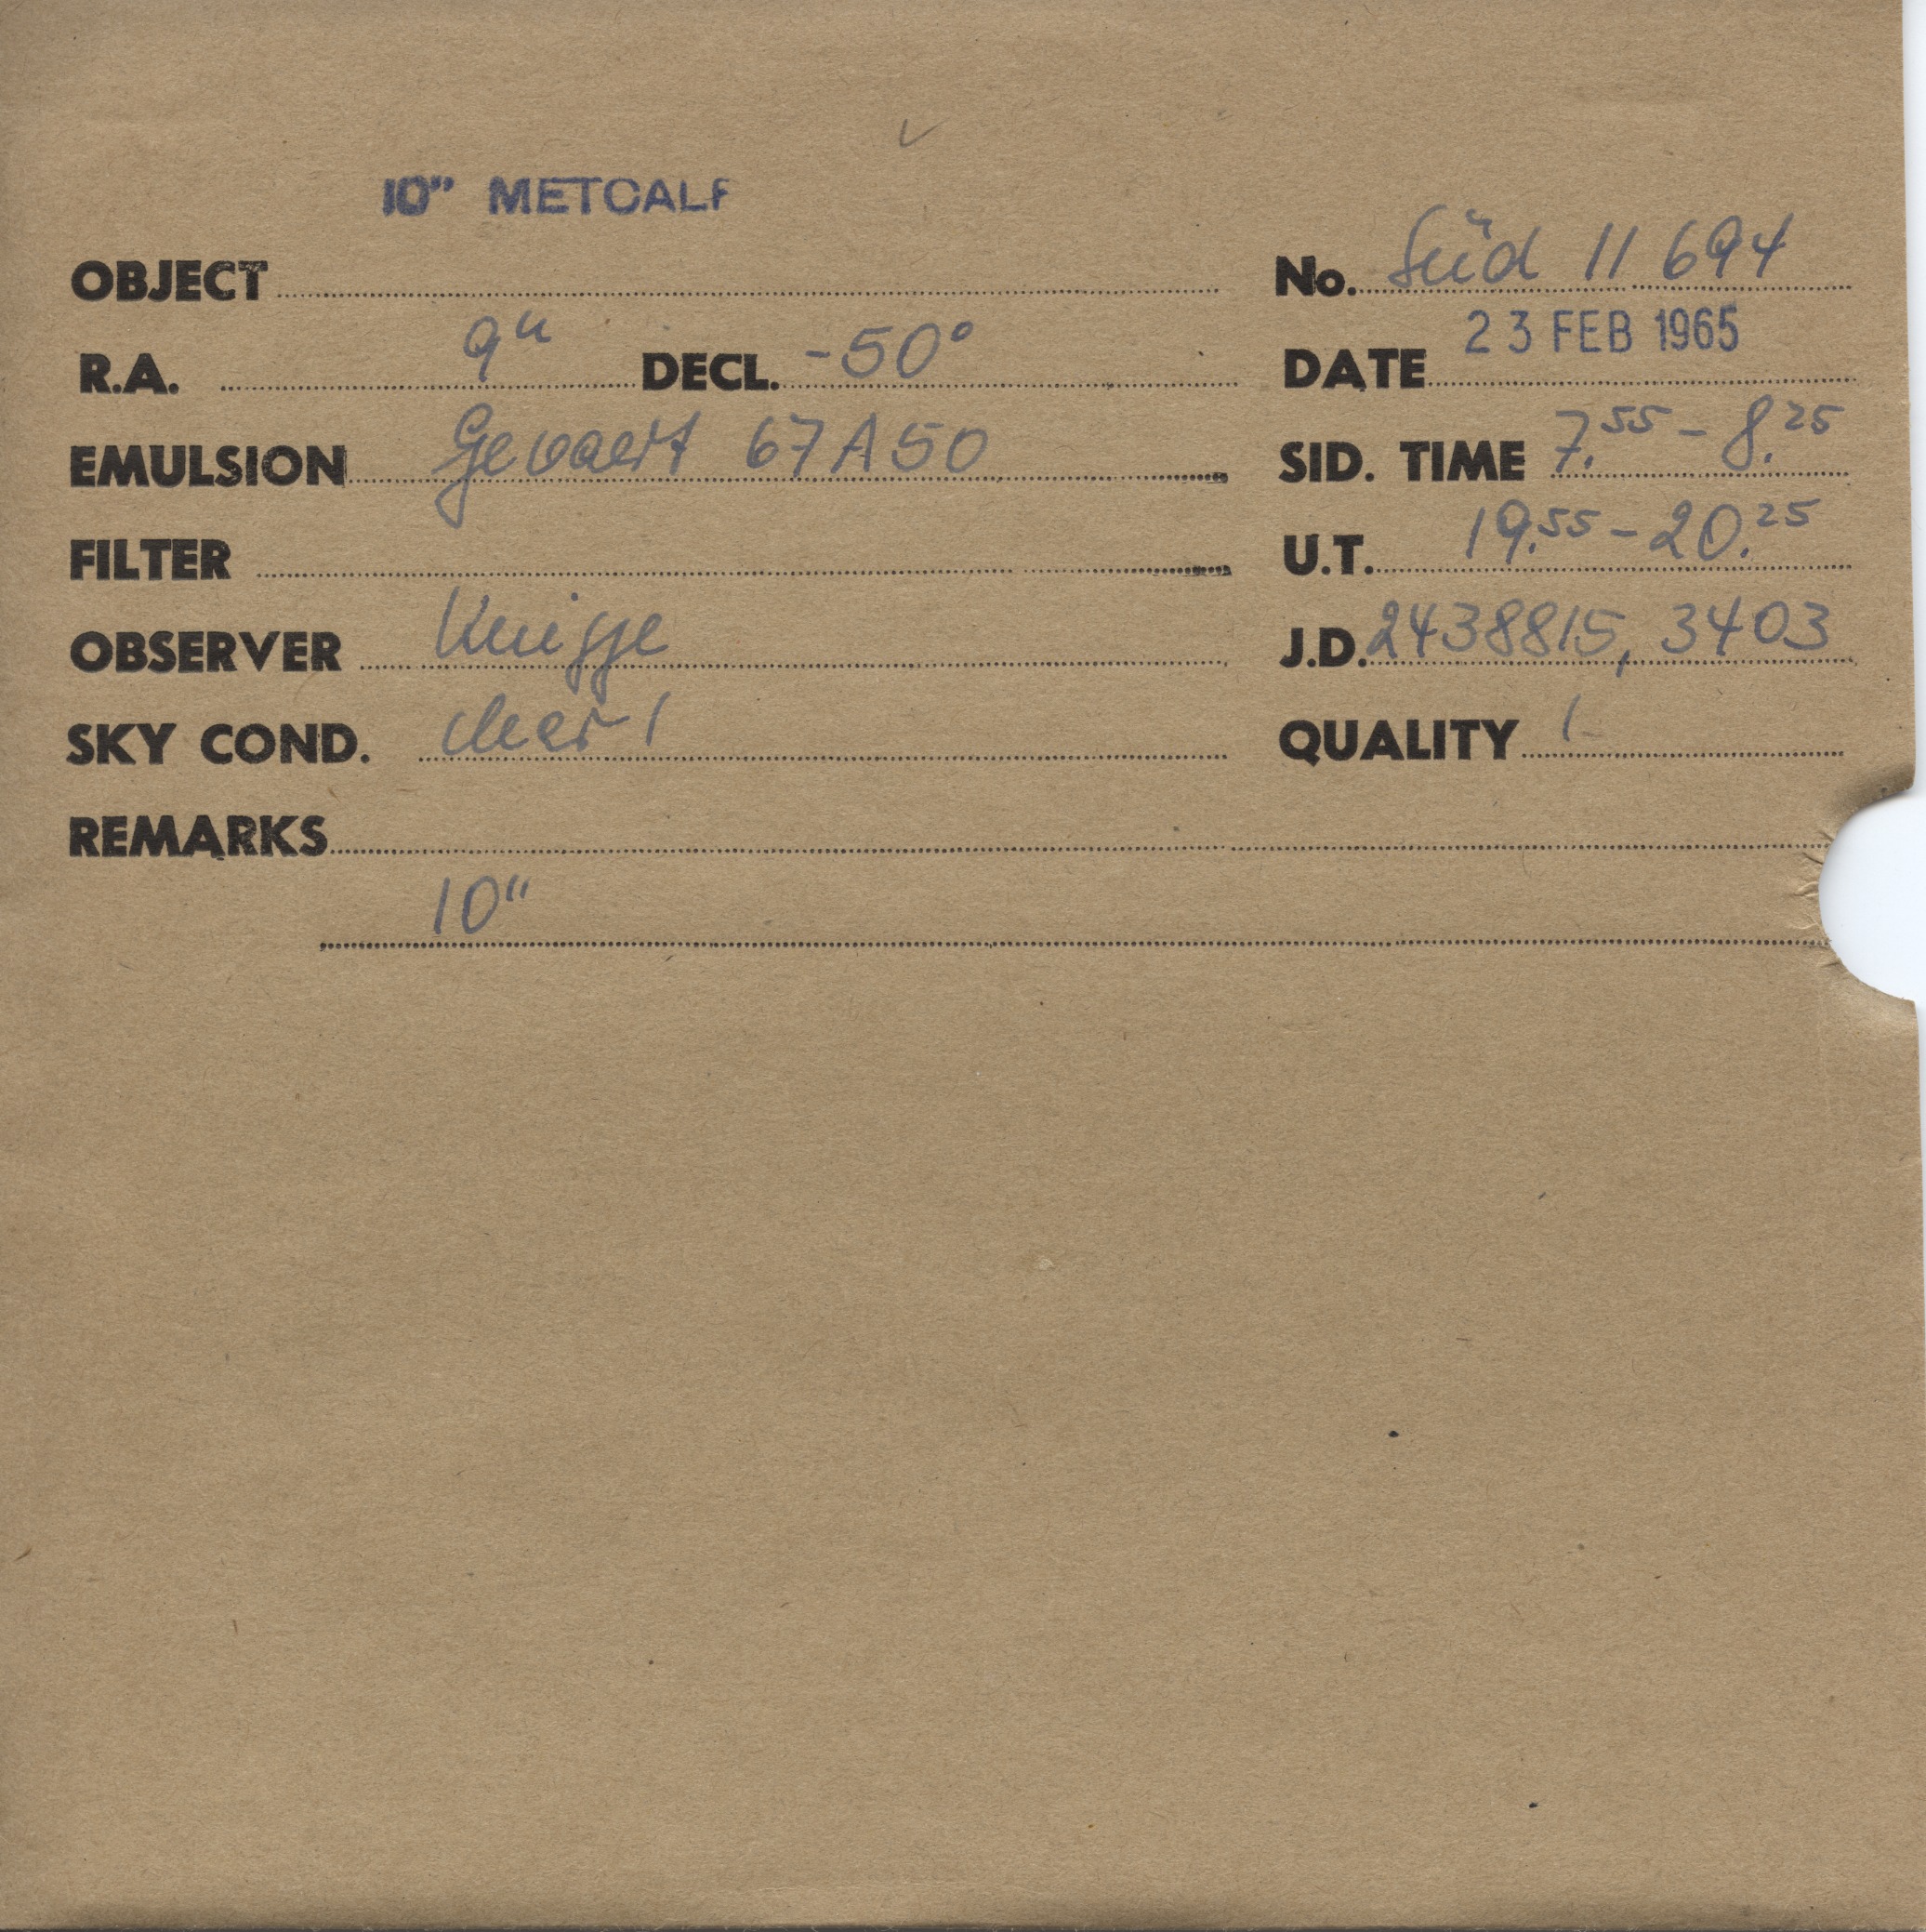 10" METCALF
OBJECT No. Süd 11 694
R.A. 9h DECL. -50° DATE 23 FEB 1965
EMULSION Gevaert 67A50 SID. TIME 7.55 - 8.25
FILTER U.T. 19.55 - 20.25
OBSERVER Knigge J.D. 2438815, 3403
SKY COND. clear 1 QUALITY 1-
REMARKS
10"